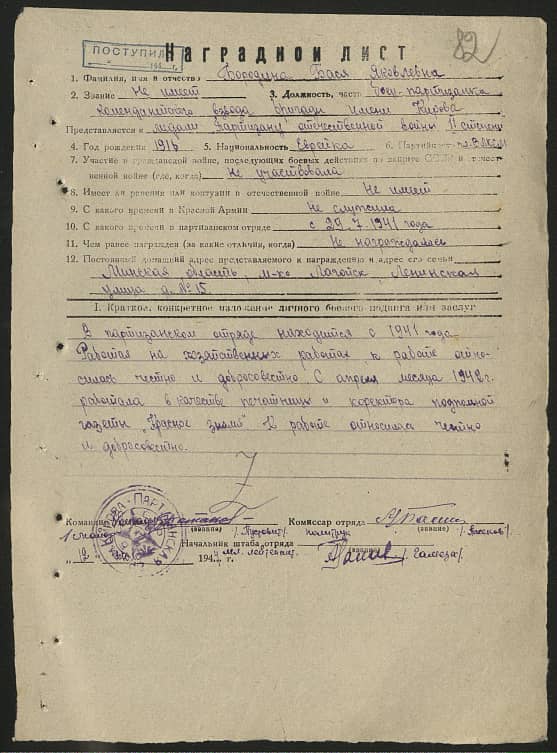 82
ПОСТУПИЛ
194 г.
Наградной лист
1. Фамилия, имя и отчество Бородина Бася Яковлевна
2. Звание Не имеет 3. Должность, часть партизанка
комендантского взвода бригады имени Кирова
Представляется к медали Партизану отечественной войны II степени
4. Год рождения 1916 5. Национальность Еврейка 6. Партийность чл. ВЛКСМ
7. Участие в гражданской войне, последующих боевых действиях по защите СССР и отечест-
венной войне (где, когда) Не участвовала
8. Имеет ли ранения или контузии в отечественной войне Не имеет
9. С какого времени в Красной Армии Не служила
10. С какого времени в партизанском отряде с 29.7.1941 года
11. Чем ранее награжден (за какие отличия, когда) Не награждалась
12. Постоянный домашний адрес представляемого к награждению и адрес его семьи
Минская область, м-ко Логойск, Ленинская
улица д. № 15.
I. Краткое, конкретное изложение личного боевого подвига или заслуг
В партизанском отряде находится с 1941 года.
Работая на хозяйственных работах к работе отно-
силась честно и добросовестно. С апреля месяца 1942 г.
работала в качестве печатницы и коректора подпольной
газеты „Красное знамя". К работе относилась честно
и добросовестно.
Командир Комиссар отряда
(звание) (звание)
политрук
Начальник штаба отряда
мл. лейтенант (звание)
„12" 194 г.